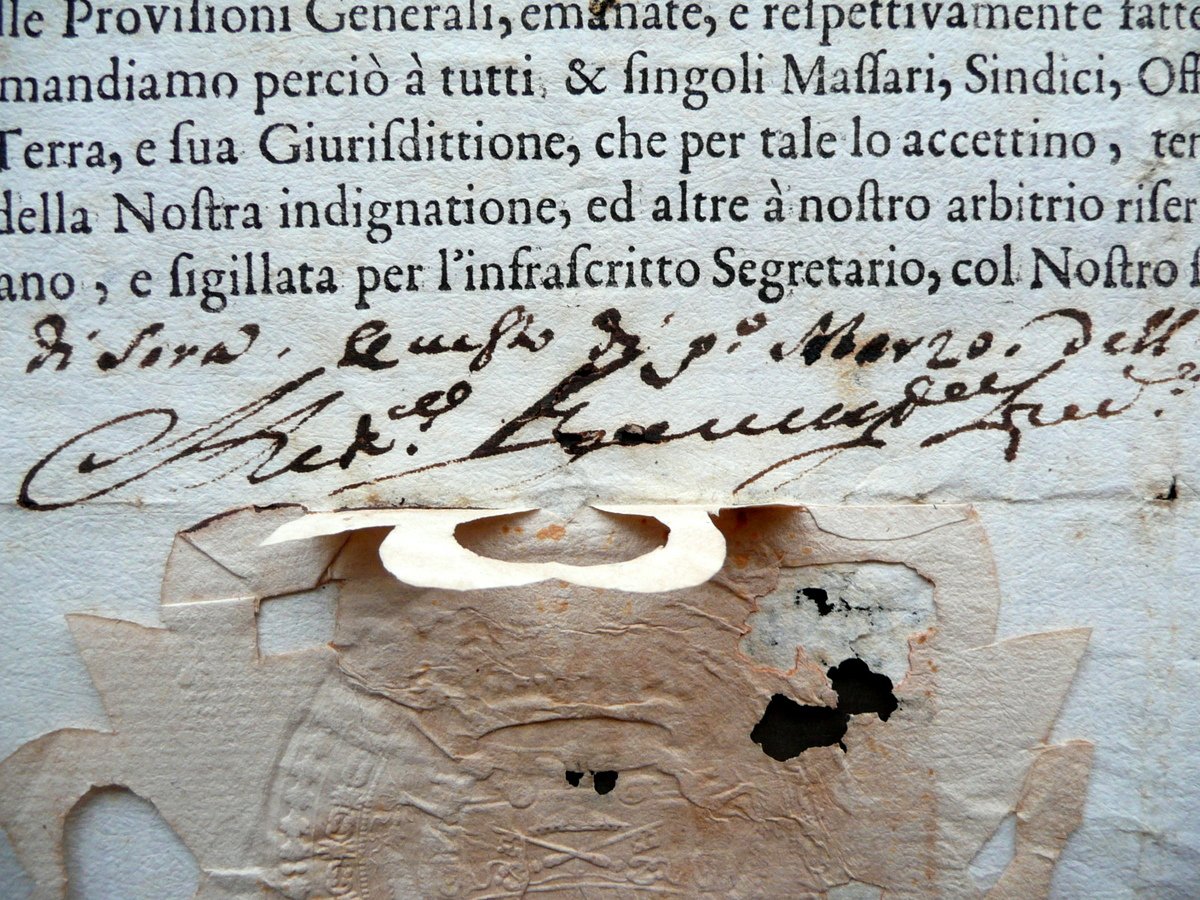 lle Proviſioni Generali, emanate, e reſpettivamente fatte
mandiamo perciò à tutti, & ſingoli Maſſari, Sindici, Off
Terra, e ſua Giuriſdittione, che per tale lo accettino, ter
della Noſtra indignatione, ed altre à noſtro arbitrio riſer
ano, e ſigillata per l'infraſcritto Segretario, col Noſtro ſ
di sopra. Queſto dì p.º Marzo. dell